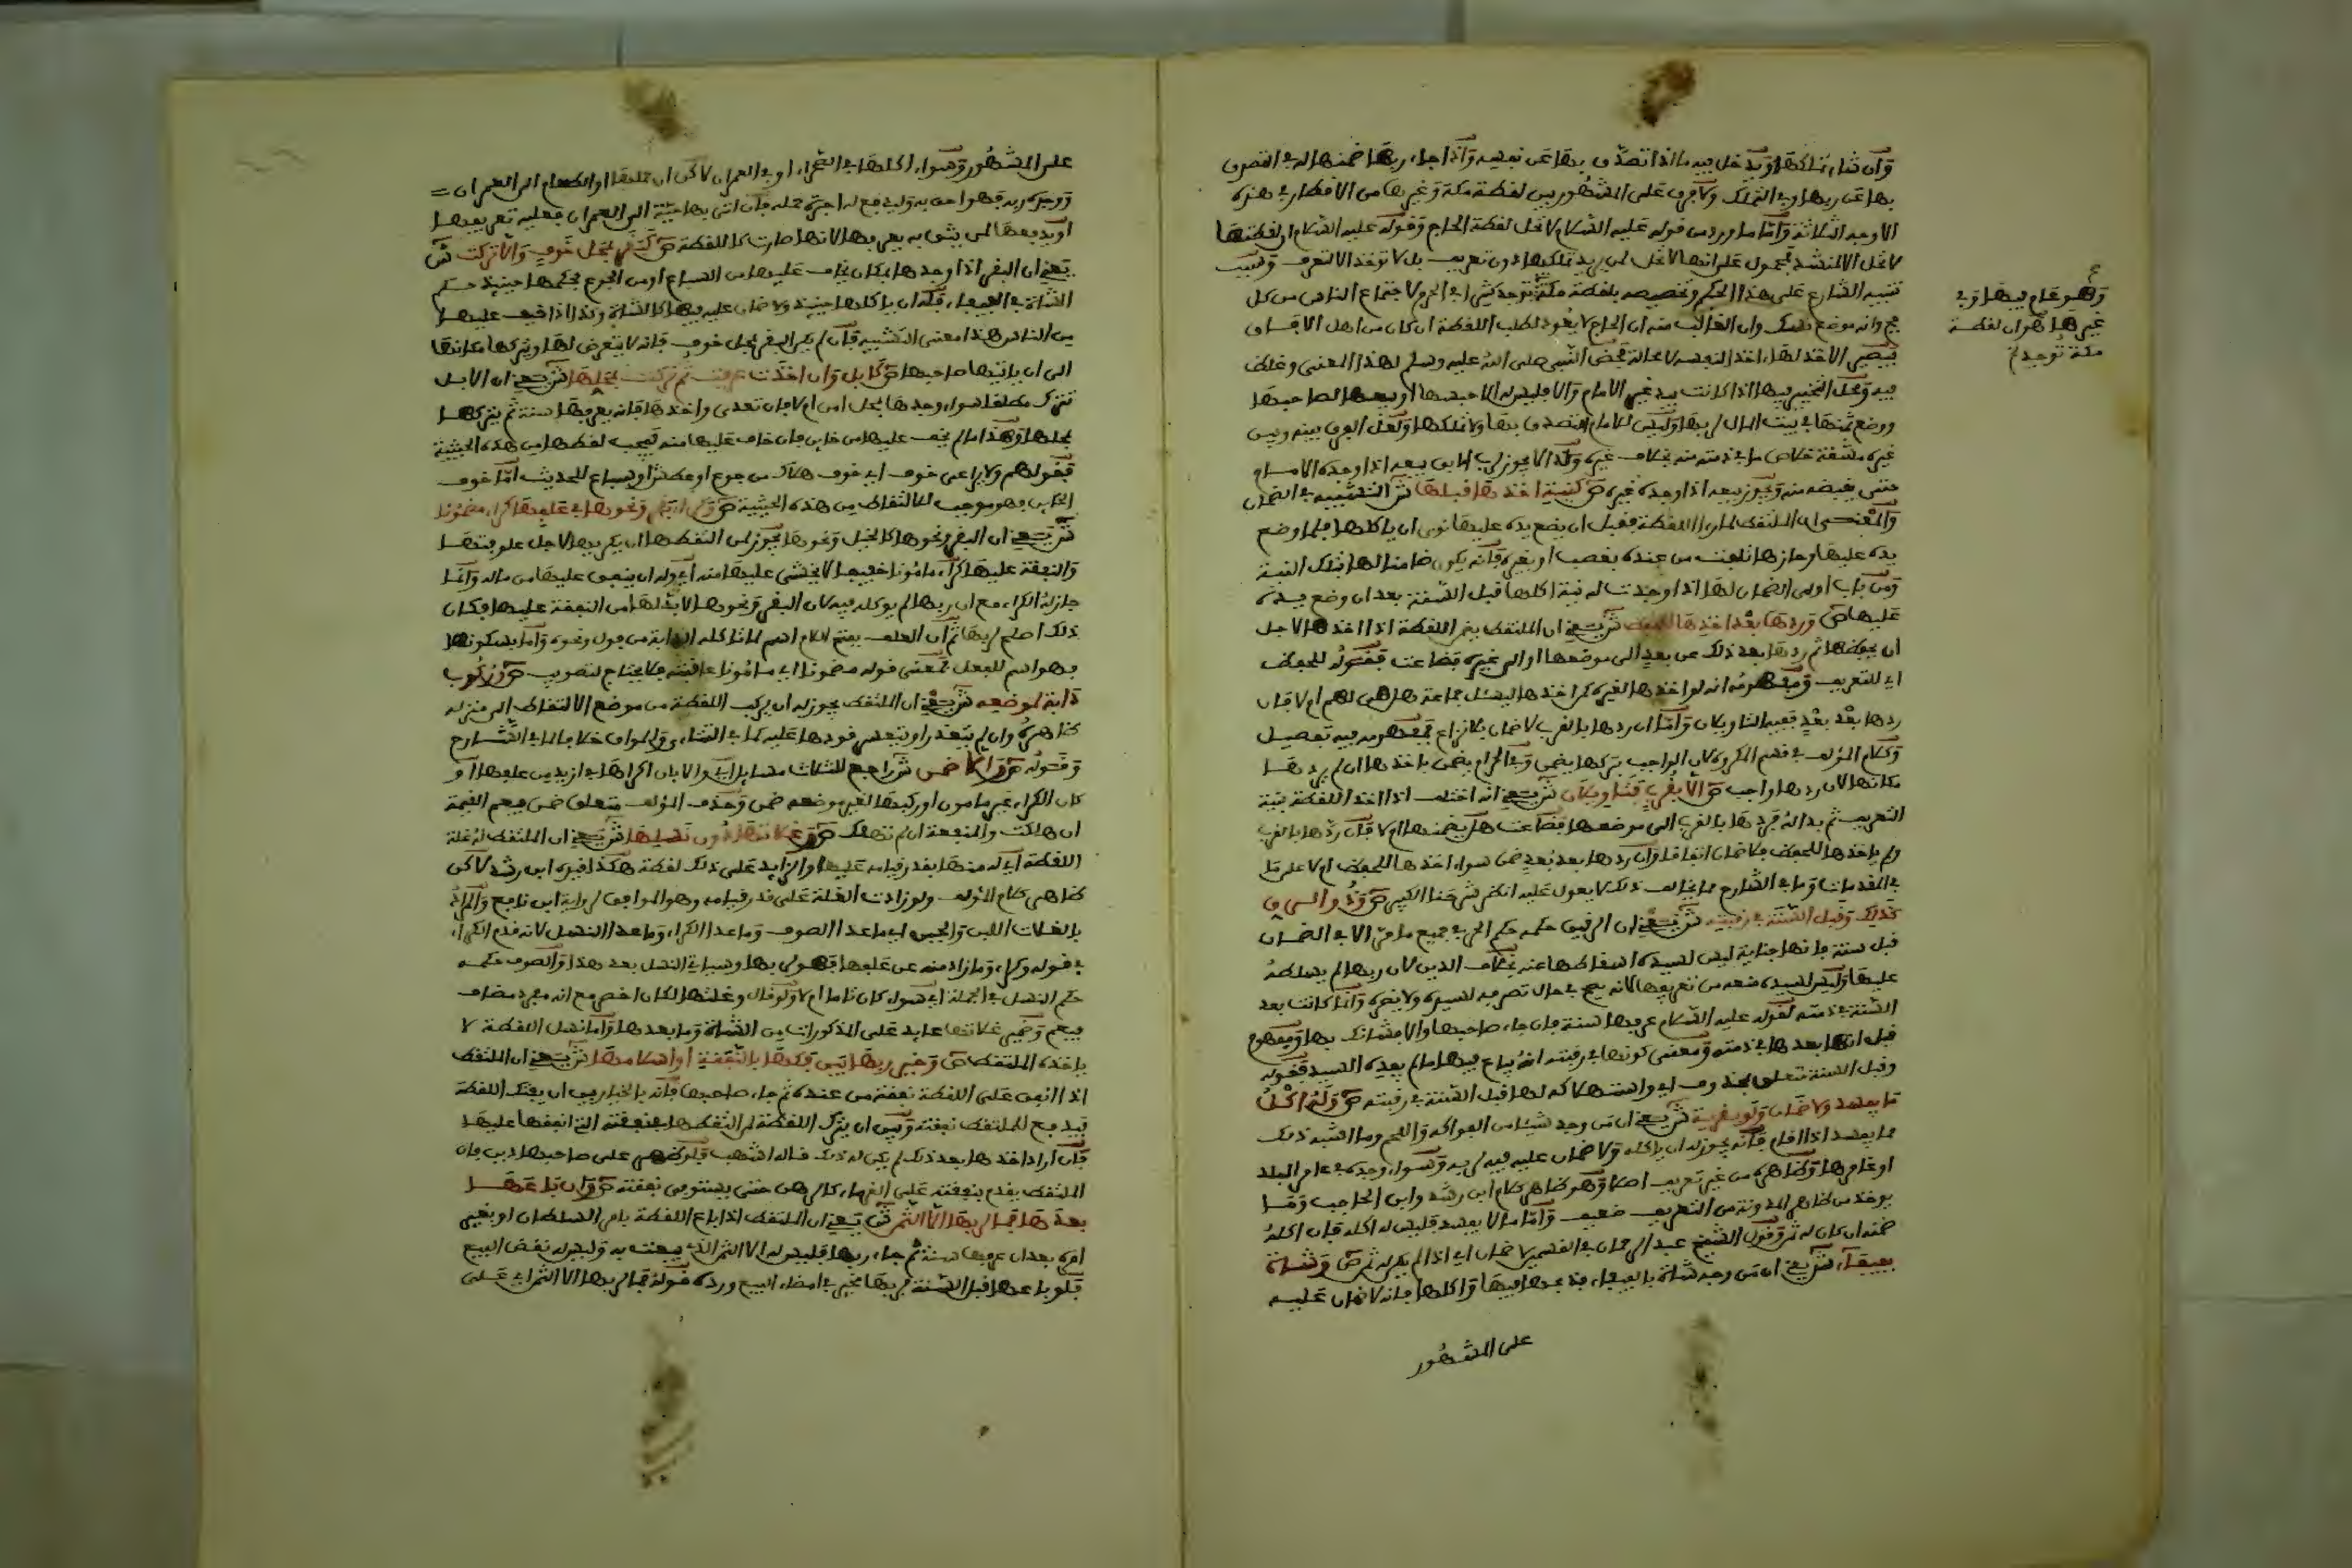 وإن شاء تملكها ويدخل فيه ما إذا تصدق بها عن نفسه وإذا جاء ربها ضمنها له في التصرف
بها عن ربها وفي التملك ولا فرق على المشهور بين لقطة مكة وغيرها من الأقطار في هذه
الأوجه الثلاثة وأما ما ورد من قوله عليه السلام لا تحل لقطة الحاج وقوله عليه السلام إن لقطتها
لا تحل إلا لمنشد فمحمول على أنها لا تحل لمن يريد تملكها دون تعريف بل لا تؤخذ إلا لتعرف وسبب
تنبيه الشارع على هذا الحكم وتخصيصه بلقطة مكة توجد كثيرا في الحرم لاجتماع الناس من كل
فج وأنه موضع نسك وأن الغالب منه أن الحاج لا يعود لطلب اللقطة إن كان من أهل الآفاق
فيصير الآخذ لها أخذ لنفسه لا محالة فخص النبي صلى الله عليه وسلم لهذا المعنى وغلظ
فيه ومحل التخيير فيها إذا كانت بيد غير الإمام وإلا فليس له إلا حبسها أو بيعها لصاحبها
ووضع ثمنها في بيت المال لربها وليس للإمام التصدق بها ولا تملكها ولعل الفرق بينه وبين
غيره مشقة خلاص ما في ذمته منه بخلاف غيره ولذا لا يجوز لرب الآبق بيعه إذا وجده الإمام
حتى يقبضه منه ويجوز بيعه إذا وجده غيره ص كنية أخذها قبلها ش التشبيه في الضمان
والمعنى أن الملتقط لما رأى اللقطة فقبل أن يضع يده عليها نوى أن يأكلها فلما وضع
يده عليها وحازها تلفت من عنده بغصب أو بغيره فإنه يكون ضامنا لها بتلك النية
ومن باب أولى الضمان لها إذا وجدت له نية أكلها قبل السنة بعد أن وضع يده
عليها ص وردها بعد أخذها للحفظ ش يعني أن الملتقط يضمن اللقطة إذا أخذها لأجل
أن يحفظها ثم ردها بعد ذلك عن بعد إلى موضعها أو إلى غيره فضاعت فقوله للحفظ
أي للتعريف ومفهومه أنه لو أخذها لغيره كمن أخذها ليسأل جماعة هل هي لهم أم لا فإن
ردها بعد بعد ففيه التأويلان وأما إن ردها بالقرب لا ضمان بلا نزاع فمفهومه فيه تفصيل
وكلام المؤلف في قسم المكروه لأن الواجب بتركها يضمن وفي الحرام يضمن بأخذها إن لم يردها
مكانها لأن ردها واجب ص إلا بقرب فتأويلان ش يعني أنه اختلف إذا أخذ اللقطة بنية
التعريف ثم بدا له فردها بالقرب إلى موضعها فضاعت هل يضمنها أم لا فإن ردها بالقرب
ولم يأخذها للحفظ فلا ضمان اتفاقا وإن ردها بعد بعد ضمن سواء أخذها للحفظ أم لا على ما
في المقدمات وما في الشارح مما يخالف ذلك لا يعول عليه انظر شرحنا الكبير ص وذو الرق
كذلك وقبل السنة في رقبته ش يعني أن الرقيق حكمه حكم الحر في جميع ما مر إلا في الضمان
قبل سنة فإنها جناية ليس لسيده إسقاطها عنه بخلاف الدين لأن ربها لم يسلطه
عليها وليس لسيده منعه من تعريفها لأنه يصح في حال تصرفه لسيده ولا يضره وإنما كانت بعد
السنة في ذمته لقوله عليه السلام عرفها سنة فإن جاء صاحبها وإلا فشأنك بها ومفهوم
قبل أنها بعدها في ذمته ومعنى كونها في رقبته أنه يباع فيها ما لم يفده السيد فقوله
وقبل السنة متعلق بمحذوف أي واستهلاكه لها قبل السنة في رقبته ص وله أكل
ما يفسد ولا ضمان ولو بقرية ش يعني أن من وجد شيئا من الفواكه واللحم وما أشبه ذلك
مما يفسد إذا أقام فإنه يجوز له أن يأكله ولا ضمان عليه فيه لربه وسواء وجده في عامر البلد
أو غامرها وظاهره من غير تعريف أصلا وهو ظاهر كلام ابن رشد وابن الحاجب وما
يؤخذ من ظاهر المدونة من التعريف ضعيف وأما ما لا يفسد فليس له أكله فإن أكله
ضمنه إن كان له ثمن وقول الشيخ عبد الرحمان في القسمين لا ضمان أي إذا لم يكن له ثمن ص وشاة
بفيفاء ش يعني أن من وجد شاة بالفيفاء فذبحها فيها وأكلها فإنه لا ضمان عليه
على المشهور
وهو عام فيها وفي
غيرها هو أن لقطة
مكة توجد ثم
على المشهور وسواء أكلها في الصحراء أو في العمران لكن إن حملها أو الطعام إلى العمران
ووجده ربه فهو أحق به وليدفع له أجرة حمله فإن أتى بها حية إلى العمران فعليه تعريفها
أو يدفعها لمن يثق به يعرفها لأنها صارت كاللقطة ص كبقر بمحل خوف وإلا تركت ش
يعني أن البقر إذا وجدها بمكان يخاف عليها من السباع أو من الجوع فحكمها حينئذ حكم
الشاة في الفيفاء فله أن يأكلها حينئذ ولا ضمان عليه فيها كالشاة وكذا إذا خيف عليها
من الناس هذا معنى التشبيه فإن لم تكن البقر بمحل خوف فإنه لا يتعرض لها ويتركها مكانها
إلى أن يأتيها صاحبها ص كإبل وإن أخذت عرفت ثم تركت بمحلها ش يعني أن الإبل
تترك مطلقا سواء وجدها بمحل أمن أم لا فإن تعدى وأخذها فإنه يعرفها سنة ثم يتركها
بمحلها وهذا ما لم يخف عليها من خائن فإن خاف عليها منه فيجب لقطها من هذه الحيثية
فقولهم ولا يراعى خوف أي خوف هلاك من جوع أو عطش أو سباع للحديث أما خوف
الخائن فهو موجب للالتقاط من هذه الحيثية ص وكراء بقر ونحوها في علفها كراء مضمونا
ش يعني أن البقر ونحوها كالخيل ونحوها يجوز لمن التقطها أن يكريها لأجل علوفتها
والنفقة عليها كراء مأمونا خفيفا لا يخشى عليها منه أي وله أن ينفق عليها من ماله وإنما
جاز له الكراء مع أن ربها لم يوكله فيه لأن البقر ونحوها لا بد لها من النفقة عليها فكان
ذلك أصلح لربها ثم إن العلف بفتح اللام اسم لما تأكله الدابة من فول ونحوه وأما بسكونها
فهو اسم للفعل فمعنى قوله مضمونا أي مأمونا عاقبته فلا يحتاج لتصويب ص وركوب
دابة لموضعه ش يعني أن الملتقط يجوز له أن يركب اللقطة من موضع الالتقاط إلى منزله
ظاهره وإن لم يتعذر أو يتعسر قودها عليه كما في التتائي والمواق خلافا لما في الشارح
وقوله ص وإلا ضمن ش راجع للثلاث مسائل أي وإلا بأن أكراها في أزيد من علفها أو
كان الكراء غير مأمون أو ركبها لغير موضعه ضمن وحذف المؤلف متعلق ضمن فيعم القيمة
إن هلكت والمنفعة إن لم تهلك ص وغلاتها دون نسلها ش يعني أن الملتقط له غلة
اللقطة أي له منها بقدر قيامه عليها والزائد على ذلك لقطة هكذا قيده ابن رشد لكن
ظاهر كلام المؤلف ولو زادت الغلة على قدر قيامه وهو الموافق لرواية ابن نافع والمراد
بالغلات اللبن والجبن أي ما عدا الصوف وما عدا الكراء وما عدا النسل لأنه قدم الكراء
في قوله وكراء وما زاد منه عن علفها فهو لربها وسيأتي النسل بعد هذا والصوف حكمه
حكم النسل في الجملة أي سواء كان تاما أم لا ولو قال وغلتها لكان أخصر مع أنه مفرد مضاف
فيعم وضمير غلاتها عائد على المذكورات من الشاة وما بعدها وأما نسل اللقطة لا
يأخذه الملتقط ص وخير ربها بين فكها بالنفقة أو إسلامها ش يعني أن الملتقط
إذا أنفق على اللقطة نفقة من عنده ثم جاء صاحبها فإنه بالخيار بين أن يفتك اللقطة
فيدفع للملتقط نفقته وبين أن يترك اللقطة لمن التقطها بنفقته التي أنفقها عليها
فإن أراد أخذها بعد ذلك لم يكن له ذلك قاله أشهب فلو ظهر على صاحبها دين فإن
الملتقط يقدم بنفقته على الغرماء كالرهن حتى يستوفي نفقته ص وإن باعها
بعدها فما لربها إلا الثمن ش يعني أن الملتقط إذا باع اللقطة بأمر السلطان أو بغير
أمره بعد أن عرفها سنة ثم جاء ربها فليس له إلا الثمن الذي بيعت به وليس له نقض البيع
فلو باعها قبل السنة فربها مخير في إمضاء البيع ورده قوله فما لربها إلا الثمن أي على